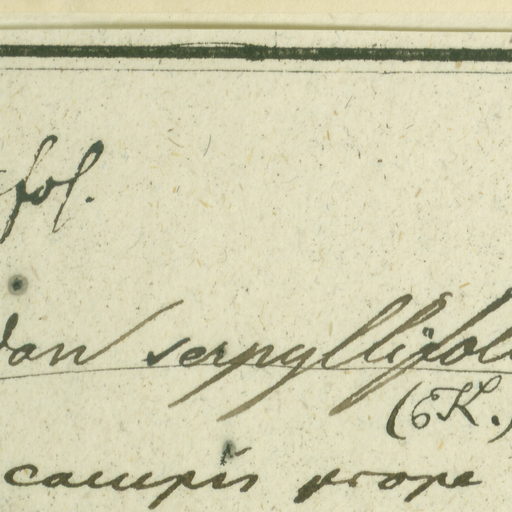 fol.
var serpyllifol
(6K.)
campis prope